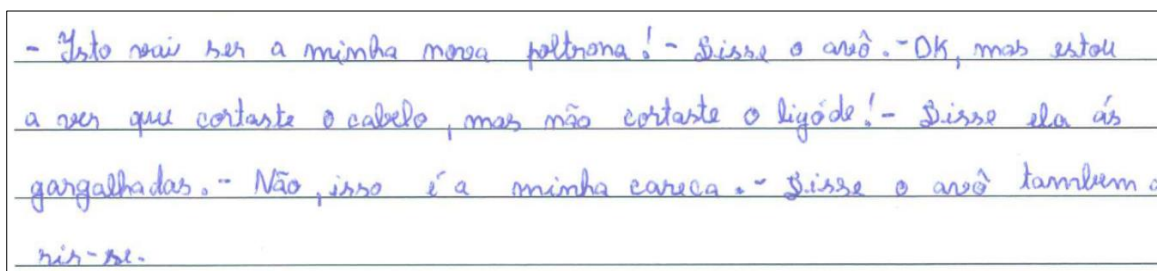 - Isto vai ser a minha nova poltrona! - Disse o avô. - OK, mas estou
a ver que cortaste o cabelo, mas não cortaste o ligóde! - Disse ela ás
gargalhadas. - Não, isso é a minha careca. - Disse o avô tambem a
rir-se.